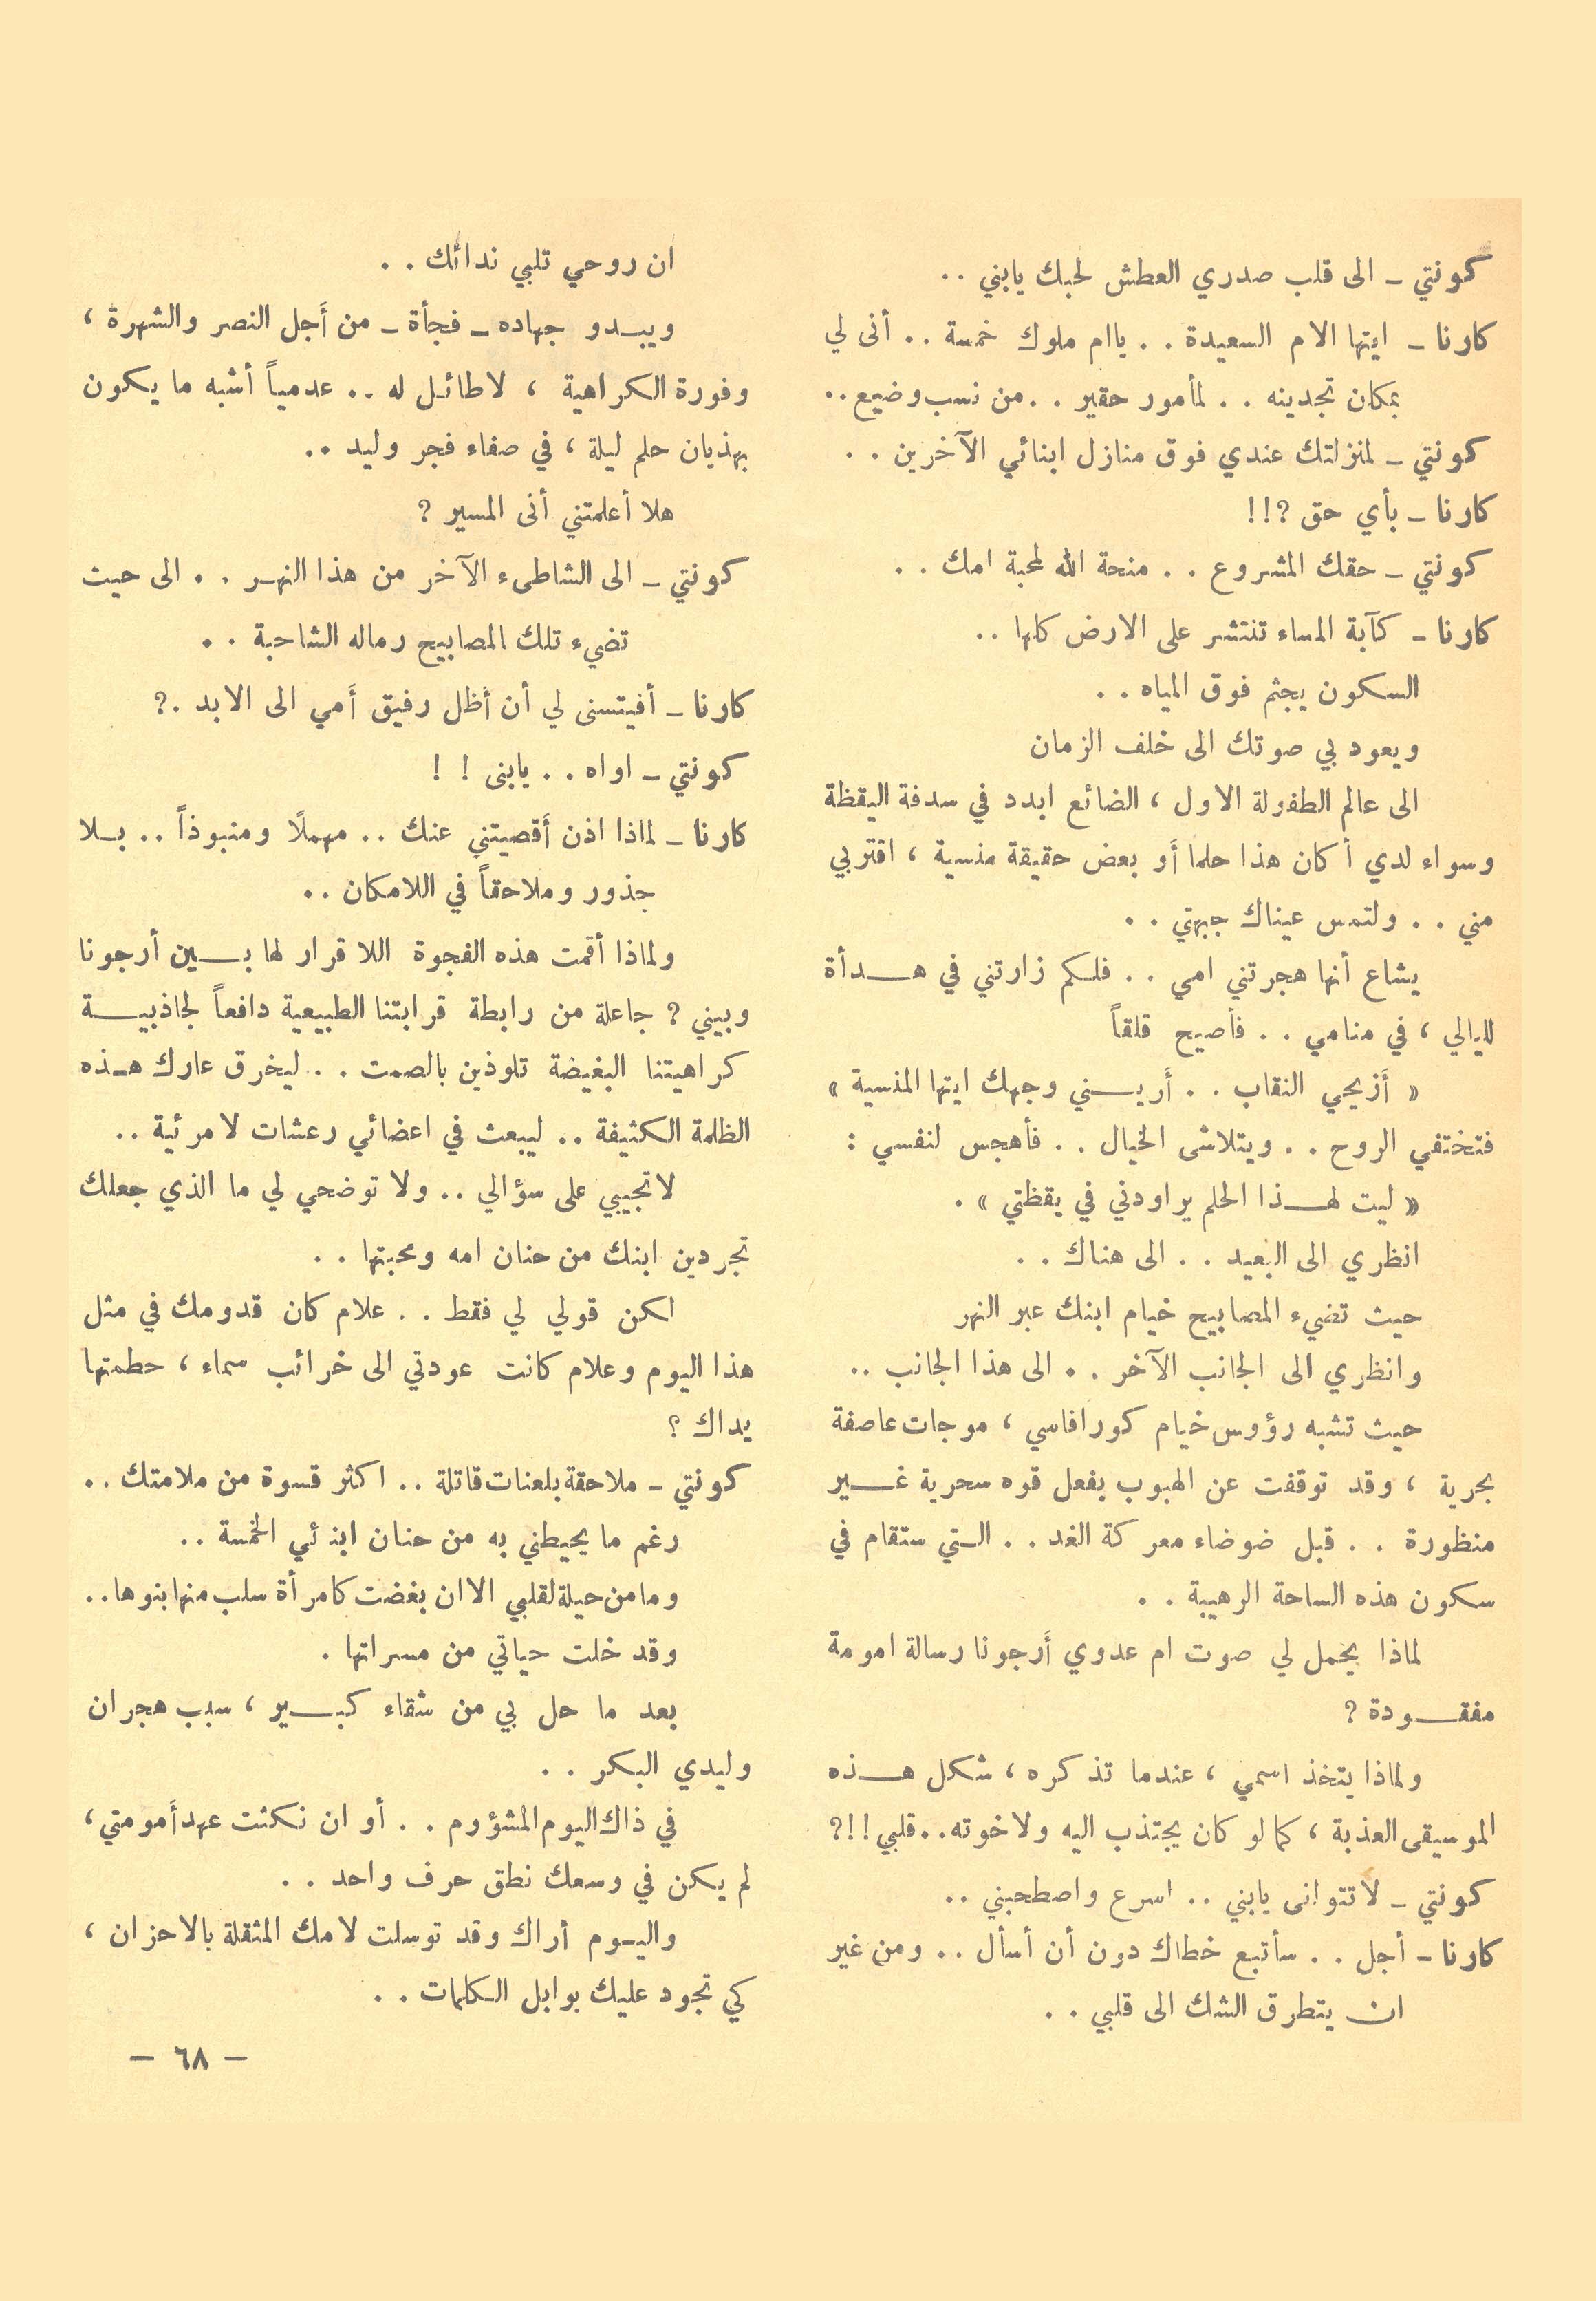 كونتي ـ الى قلب صدري العطش لحبك يابني ..
كارنا ـ ايتها الام السعيدة .. ياام ملوك خمسة .. أنى لي
بمكان تجدينه .. لمأمور حقير .. من نسب وضيع ..
كونتي ـ لمنزلتك عندي فوق منازل ابنائي الآخرين ..
كارنا ـ بأي حق ؟!!
كونتي ـ حقك المشروع .. منحة الله لمحبة امك ..
كارنا ـ كآبة المساء تنتشر على الارض كلها ..
السكون يجثم فوق المياه ..
ويعود بي صوتك الى خلف الزمان
الى عالم الطفولة الاول ، الضائع ابدد في سدفة اليقظة
وسواء لدي أكان هذا حلما أو بعض حقيقة منسية ، اقتربي
مني .. ولتمس عيناك جبهتي ..
يشاع أنها هجرتني امي .. فلكم زارتني في هـــدأة
لليالي ، في منامي .. فأصيح قلقاً
« أزيحي النقاب .. أريـــني وجهك ايتها المنسية »
فتختفي الروح .. ويتلاشى الخيال .. فأهجس لنفسي :
« ليت لهـــذا الحلم يراودني في يقظتي » .
انظري الى البعيد .. الى هناك ..
حيث تضيء المصابيح خيام ابنك عبر النهر
وانظري الى الجانب الآخر .. الى هذا الجانب ..
حيث تشبه رؤوس خيام كورافاسي ، موجات عاصفة
بحرية ، وقد توقفت عن الهبوب بفعل قوه سحرية غـــير
منظورة .. قبل ضوضاء معركة الغد .. الـتي ستقام في
سكون هذه الساحة الرهيبة ..
لماذا يحمل لي صوت ام عدوي أرجونا رسالة امومة
مفقـــودة ؟
ولماذا يتخذ اسمي ، عندما تذكره ، شكل هـــذه
الموسيقى العذبة ، كما لو كان يجتذب اليه ولاخوته .. قلبي !!؟
كونتي ـ لاتتوانى يابني .. اسرع واصطحبني ..
كارنا ـ أجل .. سأتبع خطاك دون أن أسأل .. ومن غير
ان يتطرق الشك الى قلبي ..
ان روحي تلبي ندائك ..
ويبـدو جهاده ـ فجأة ـ من أجل النصر والشهرة ،
وفورة الكراهية ، لاطائـل له .. عدمياً أشبه ما يكون
بهذيان حلم ليلة ، في صفاء فجر وليد ..
هلا أعلمتني أنى المسير ؟
كونتي ـ الى الشاطىء الآخر من هذا النهـر .. الى حيث
تضيء تلك المصابيح رماله الشاحبة ..
كارنا ـ أفيتسنى لي أن أظل رفيق أمي الى الابد .؟
كونتي ـ اواه .. يابنى ! !
كارنا ـ لماذا اذن أقصيتني عنك .. مهملًا ومنبوذاً .. بـلا
جذور وملاحقاً في اللامكان ..
ولماذا أقمت هذه الفجوة اللا قرار لها بـــين أرجونا
وبيني ؟ جاعلة من رابطة قرابتنا الطبيعية دافعاً لجاذبيـــة
كراهيتنا البغيضة تلوذين بالصمت .. ليخرق عارك هـذه
الظلمة الكثيفة .. ليبعث في اعضائي رعشات لامرئية ..
لاتجيبي على سؤالي .. ولا توضحي لي ما الذي جعلك
تجردين ابنك من حنان امه ومحبتها ..
لكن قولي لي فقط .. علام كان قدومك في مثل
هذا اليوم وعلام كانت عودتي الى خرائب سماء ، حطمتها
يداك ؟
كونتي ـ ملاحقة بلعنات قاتلة .. اكثر قسوة من ملامتك ..
رغم ما يحيطني به من حنان ابنائي الخمسة ..
ومامن حيلة لقلبي الاان بغضت كامرأة سلب منها بنوها ..
وقد خلت حياتي من مسراتها .
بعد ما حل بي من شقاء كبـــير ، سبب هجران
وليدي البكر ..
في ذاك اليوم المشؤوم .. أو ان نكثت عهد أمومتي ،
لم يكن في وسعك نطق حرف واحد ..
واليـوم أراك وقد توسلت لامك المثقلة بالاحزان ،
كي تجود عليك بوابل الكلمات ..
— ٦٨ —